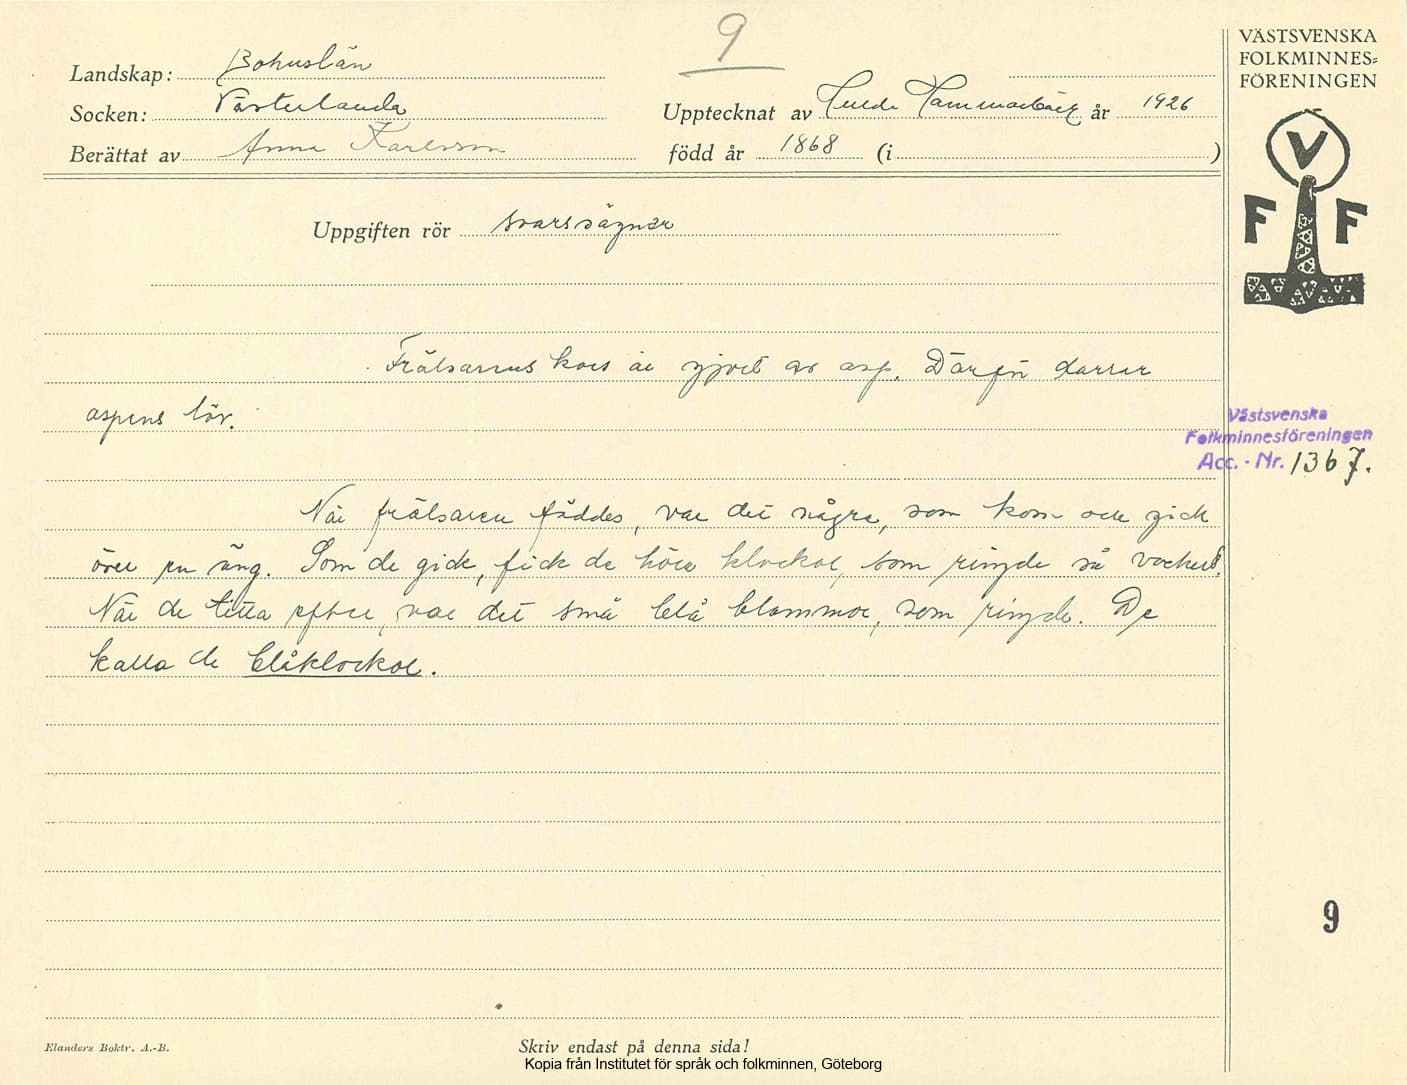 9
VÄSTSVENSKA
FOLKMINNES=
FÖRENINGEN
Landskap: Bohuslän
Socken: Västerlanda
Upptecknat av Hulda Hammarbäck år 1926
Berättat av Anna Karlsson
född år 1868 (i )
V
F F
Uppgiften rör svarssägner
Frälsarens kors är gjort av asp. Därför darrar
aspens löv.
Västsvenska
Folkminnesföreningen
Acc. - Nr. 1367.
När frälsaren föddes, var det några, som kom och gick
över en äng. Som de gick, fick de höra klockor, som ringde så vackert.
När de titta efter, var det små blå blommor, som ringde. De
kalla de blåklockor.
9
Elanders Boktr. A.-B.
Skriv endast på denna sida!
Kopia från Institutet för språk och folkminnen, Göteborg